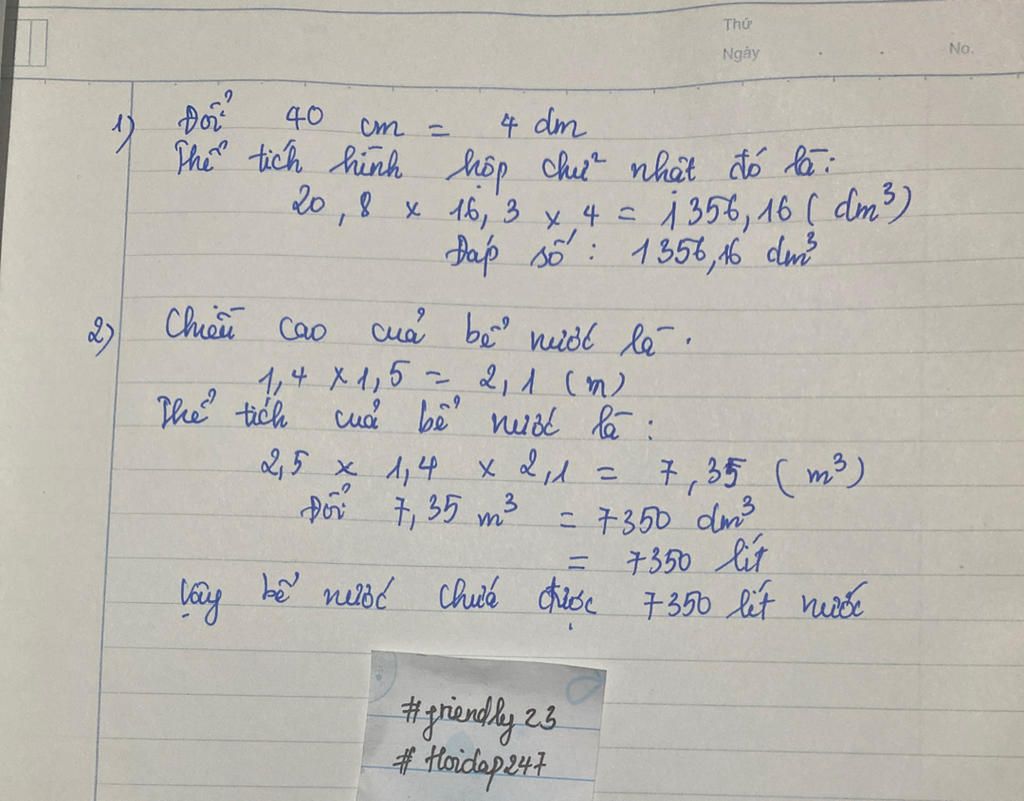 Thứ
Ngày . . No.
1) Đổi 40 cm = 4 dm
Thể tích hình hộp chữ nhật đó là:
20,8 x 16,3 x 4 = 1356,16 (dm³)
Đáp số: 1356,16 dm³
2) Chiều cao của bể nước là.
1,4 x 1,5 = 2,1 (m)
Thể tích của bể nước là:
2,5 x 1,4 x 2,1 = 7,35 (m³)
Đổi 7,35 m³ = 7350 dm³
= 7350 lít
Vậy bể nước chứa được 7350 lít nước
#friendly23
#Hoidap247